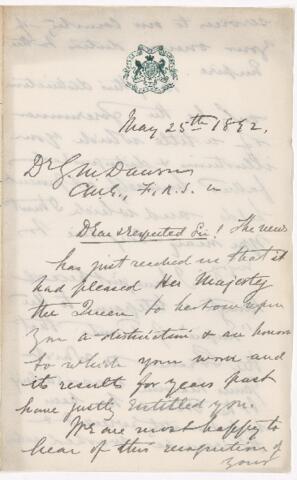 May 25th 1892.
Dr G. M. Dawson
C.M.G., F.R.S.
Dear & respected Sir! The news
has just reached us that it
had pleased Her Majesty
the Queen to bestow upon
you a distinction & an honor
to which your work and
its results for years past
have justly entitled you.
We are most happy to
hear of this recognition of
your